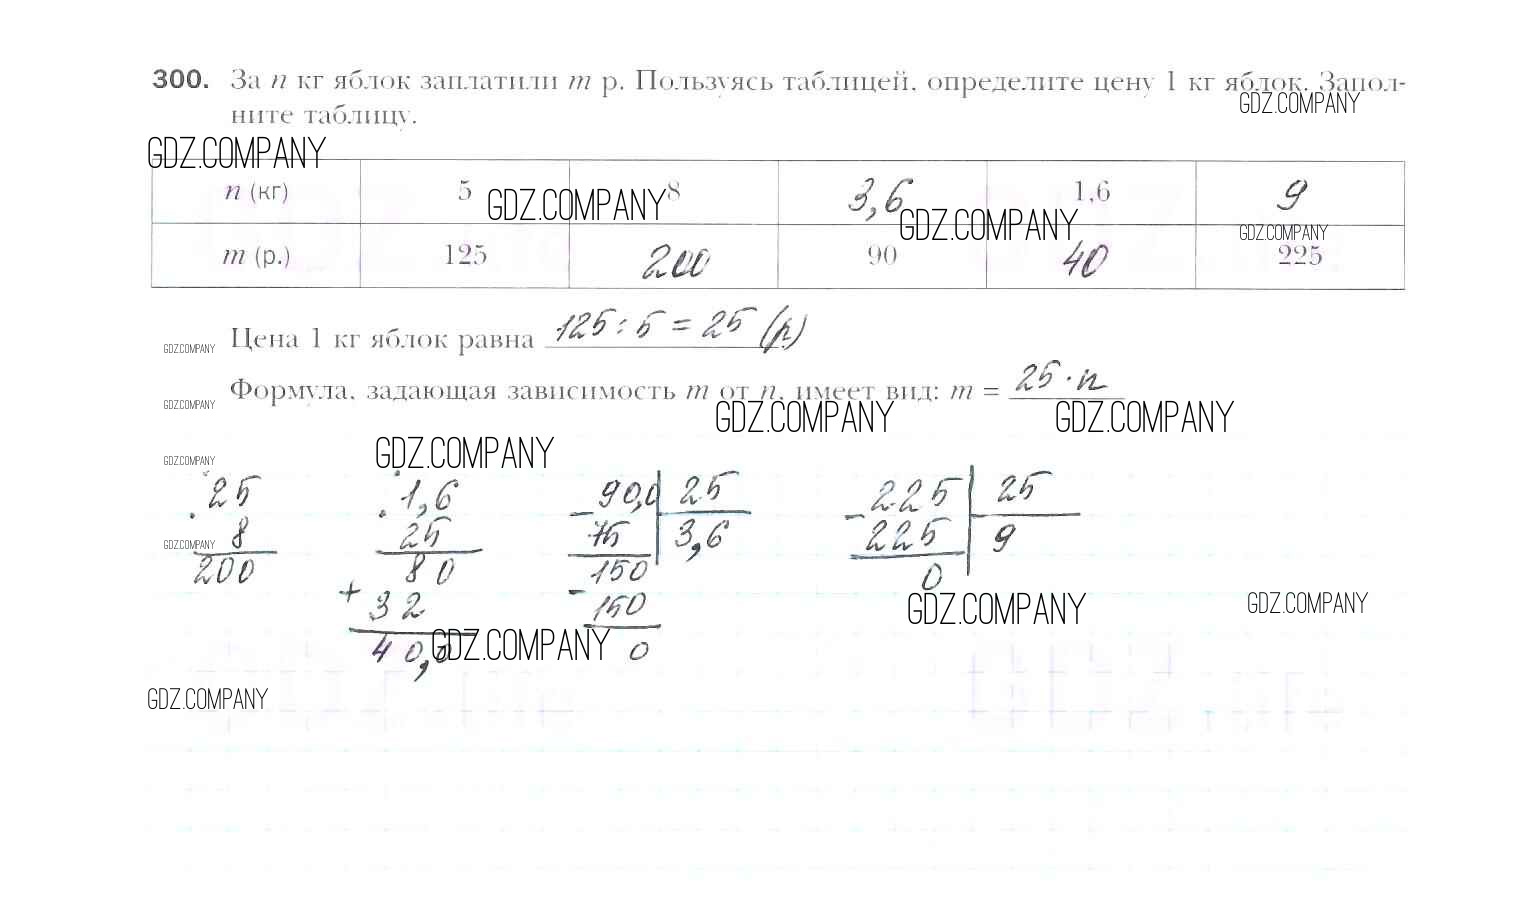 300. За n кг яблок заплатили m р. Пользуясь таблицей, определите цену 1 кг яблок. Запол-
GDZ.COMPANY
ните таблицу.
GDZ.COMPANY
n (кг) 5 8 3,6 1,6 9
GDZ.COMPANY
GDZ.COMPANY
GDZ.COMPANY
m (р.) 125 200 90 40 225
Цена 1 кг яблок равна 125 : 5 = 25 (р)
GDZ.COMPANY
Формула, задающая зависимость m от n, имеет вид: m = 25 · n
GDZ.COMPANY
GDZ.COMPANY
GDZ.COMPANY
GDZ.COMPANY
GDZ.COMPANY
25 1,6 90,0 25 225 25
8 25 75 3,6 225 9
GDZ.COMPANY
200 80 150 0
+ 32 150
GDZ.COMPANY
GDZ.COMPANY
40,0 0
GDZ.COMPANY
GDZ.COMPANY